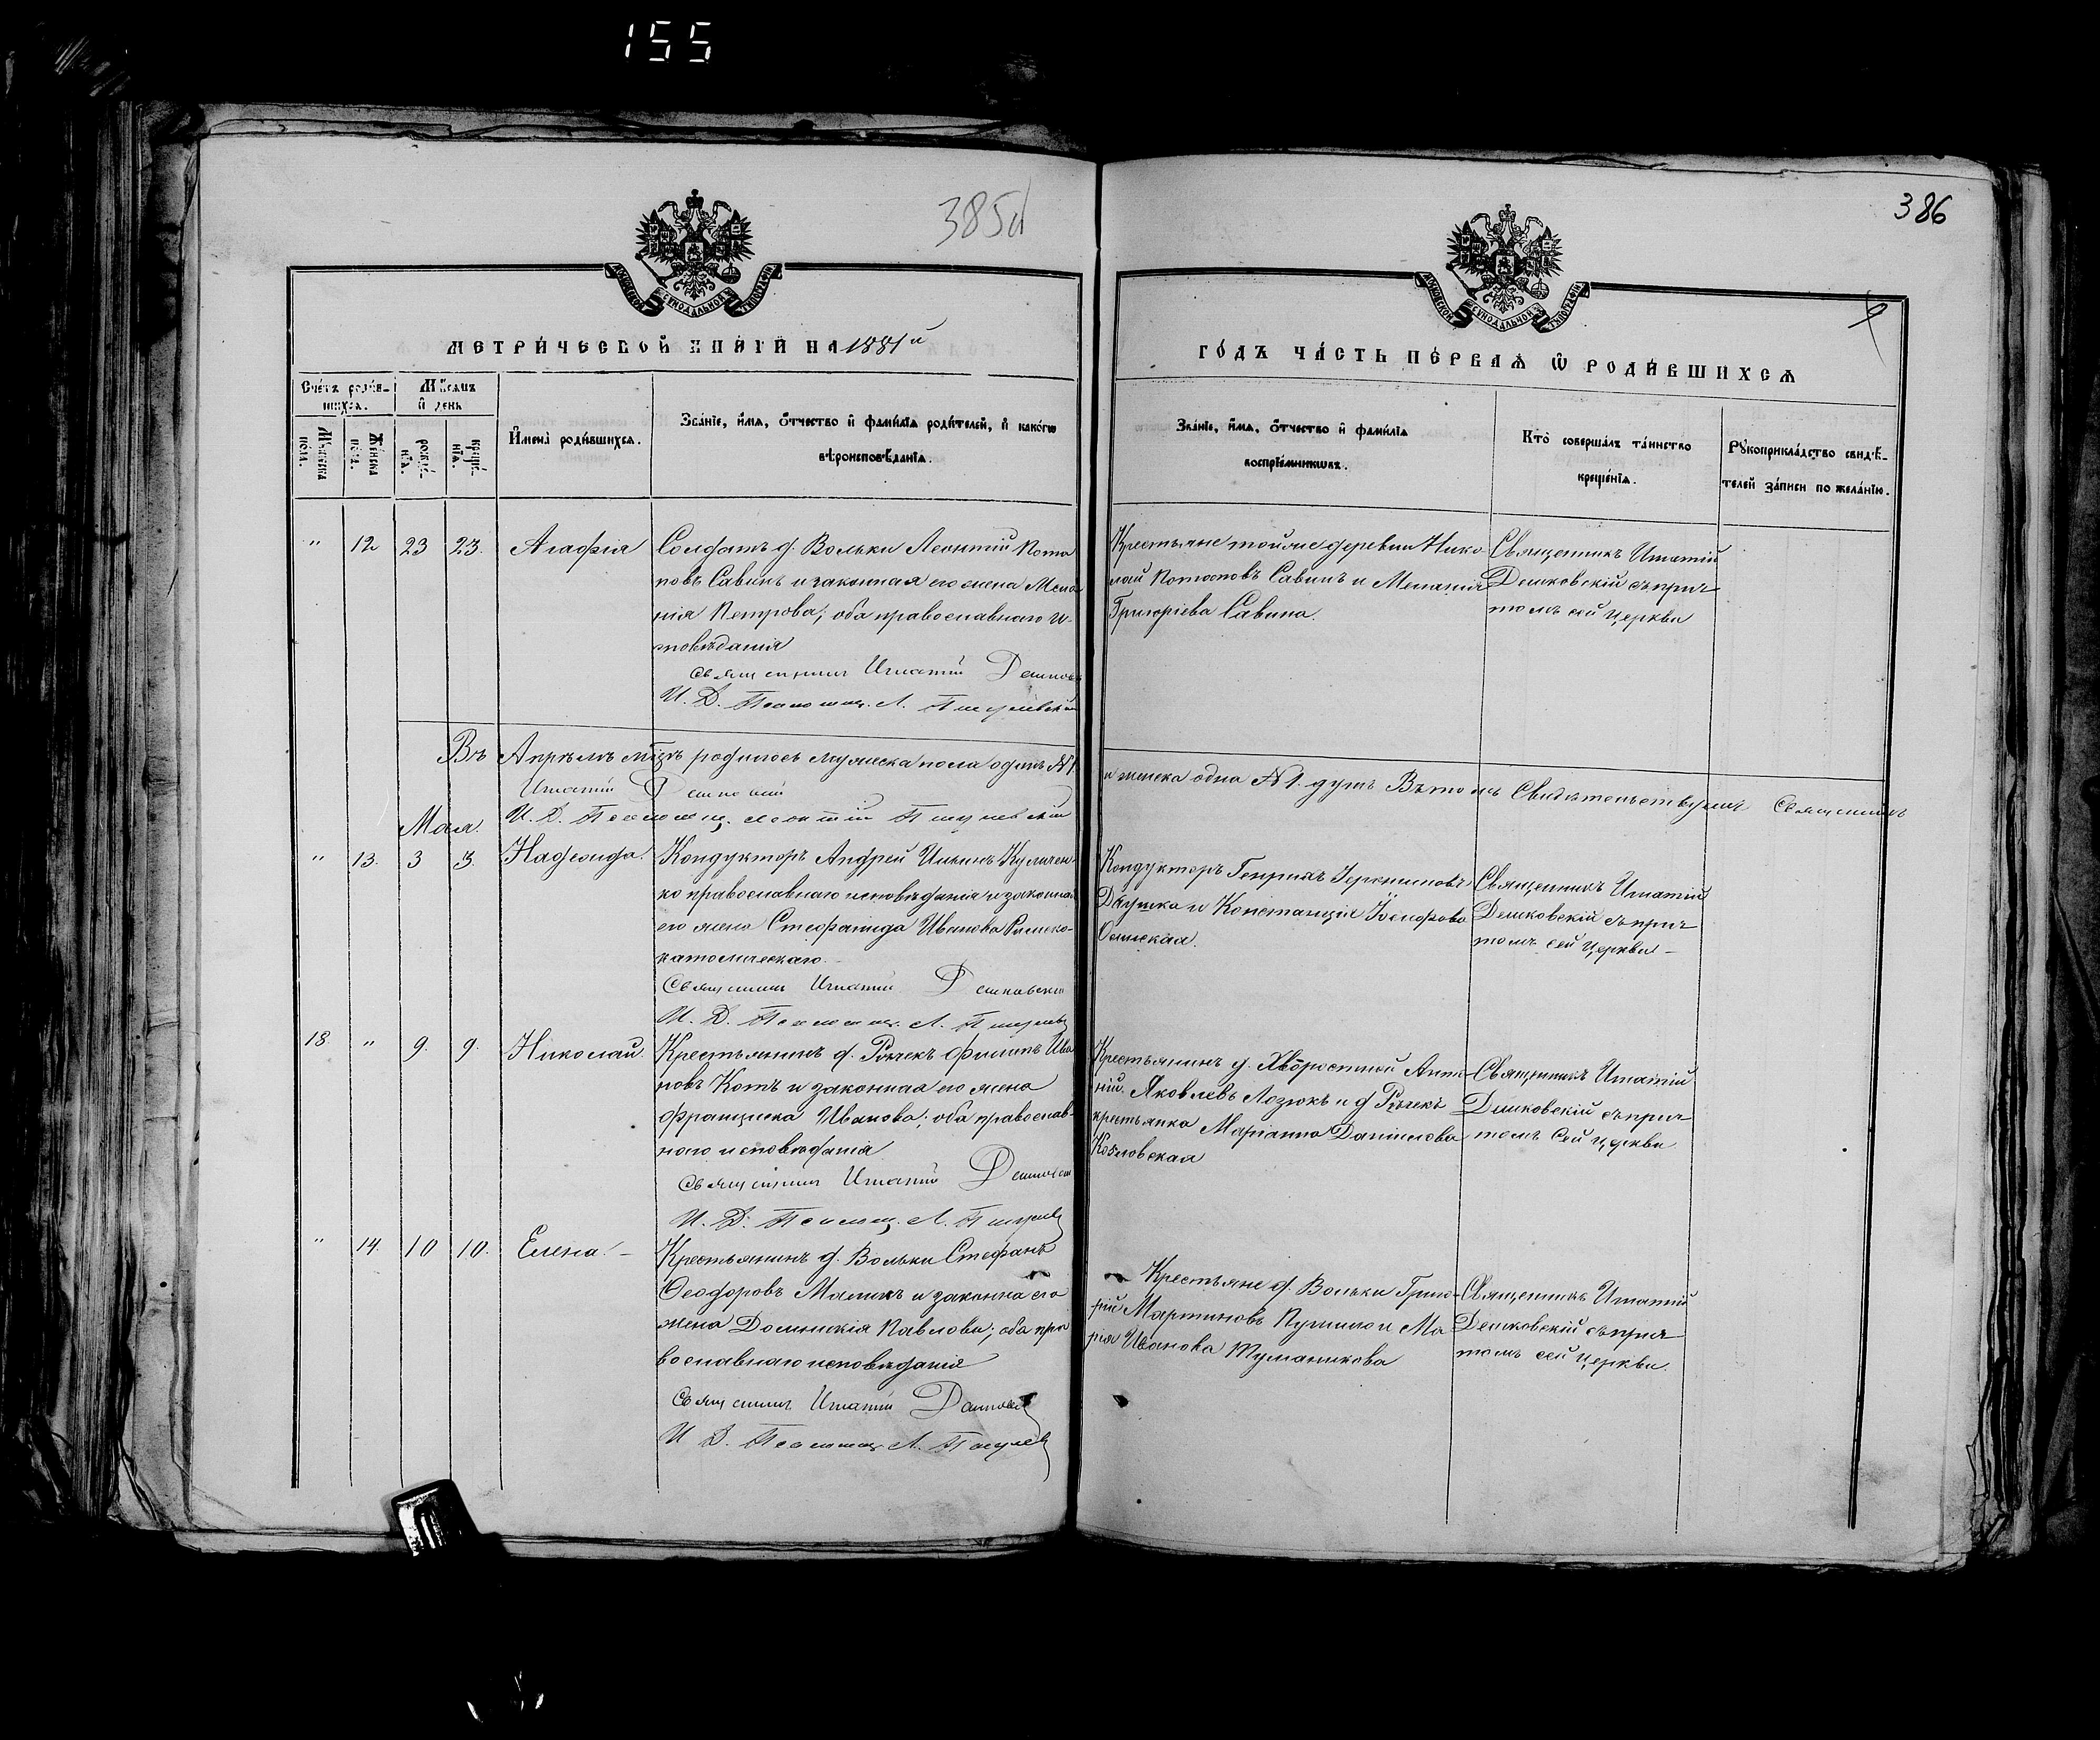 155
385об
386
МОСКОВСКОЙ СѴНОДАЛЬНОЙ ТѴПОГРАФІИ
МОСКОВСКОЙ СѴНОДАЛЬНОЙ ТѴПОГРАФІИ
МЕТРИ́ЧЕСКОЙ КНИ́ГИ НА 1881й
ГО́ДЪ ЧА́СТЬ ПЕ́РВАѦ Ѡ҆ РОДИ́ВШИХСѦ
Сче́тъ роди́вшихсѧ.
Мꙋ́жеска пола.
Же́нска пола.
Мѣ́сѧцъ и҆ день
рожде́нїѧ.
креще́нїѧ.
И҆мена̀ роди́вшихсѧ.
Зва́нїе, и҆́мѧ, ѻ҆́тчество и҆ фами́лїѧ роди́телей, и҆ како́гѡ
вѣроисповѣ́данїѧ.
Зва́нїе, и҆́мѧ, ѻ҆́тчество и҆ фами́лїѧ
воспрїе́мникѡвъ.
Кто̀ соверша́лъ та́инство
креще́нїѧ.
Рꙋкоприкла́дство свидѣ́-
телей за́писи по жела́нїю.
" 12 23 23. Агафія
Солдатъ д. Вольки Леонтій Пота
повъ Савинъ и законная его жена Мела
нія Петрова; оба православнаго и-
сповѣданія
Священникъ Игнатій
И. Д. Псаломщ. Л.
Крестьяне тойже деревни Нико
лай Потаповъ Савинъ и Меланія
Григоріева Савина.
Священникъ Игнатій
Демковскій съ прич
томъ сей церкви
Въ Апрѣлѣ мцѣ родилось мужеска пола одинъ №1
и женска одна №1. душъ Въ томъ Свидѣтельствуемъ Священникъ
Игнатій
И. Д. Псаломщ. Леонтій
Мая.
" 13. 3 3. Надежда.
Кондукторъ Андрей Куличен-
ко православнаго исповѣданія и законная
его жена Стефанида Иванова Римско-
католическаго.
Священникъ Игнатій Демковскій
И. Д. Псаломщ. Л.
Кондукторъ Генрихъ
и Констанція Іосифова
Священникъ Игнатій
Демковскій съ прич
томъ сей церкви
18 " 9. 9. Николай.
Крестьянинъ д. Рѣчекъ Филипъ Ива
новъ Котъ и законная его жена
Франциска Иванова; оба православ-
наго исповѣданія
Священникъ Игнатій
И. Д. Псаломщ. Л.
Крестьянинъ д. Хворостной Анто-
ній Яковлевъ Лозюкъ и д Рѣчекъ
крестьянка Маріанна Даніилова
Козловская
Священникъ Игнатій
Демковскій съ прич
томъ сей церкви
" 14. 10 10. Елена. –
Крестьянинъ д. Вольки Стефанъ
Ѳеодоровъ Малихъ и законна его
жена Домникія Павлова; оба пра
вославнаго исповѣданія
Священникъ Игнатій
И Д. Псаломщ. Л.
Крестьяне д. Вольки Григо-
рій Мартиновъ и Ма
рія Иванова Туманикова
Священникъ Игнатій
Демковскій съ прич
томъ сей церкви.